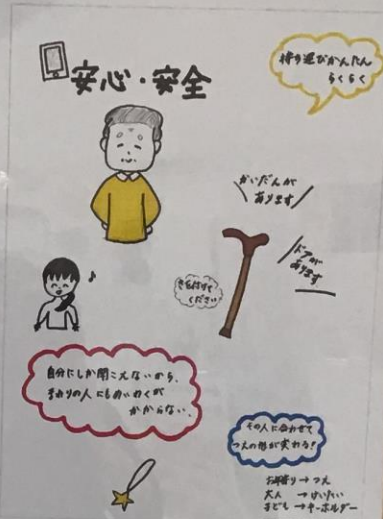 安心・安全
持ち運びかんたん
らくらく
かいだんが
あります
ドアが
あります
気を付けて
ください
自分にしか聞こえないから、
まわりの人にもめいわくが
かからない。
その人に合わせて
つえの形が変わる！
お年寄り→つえ
大人　→けいたい
子ども→キーホルダー